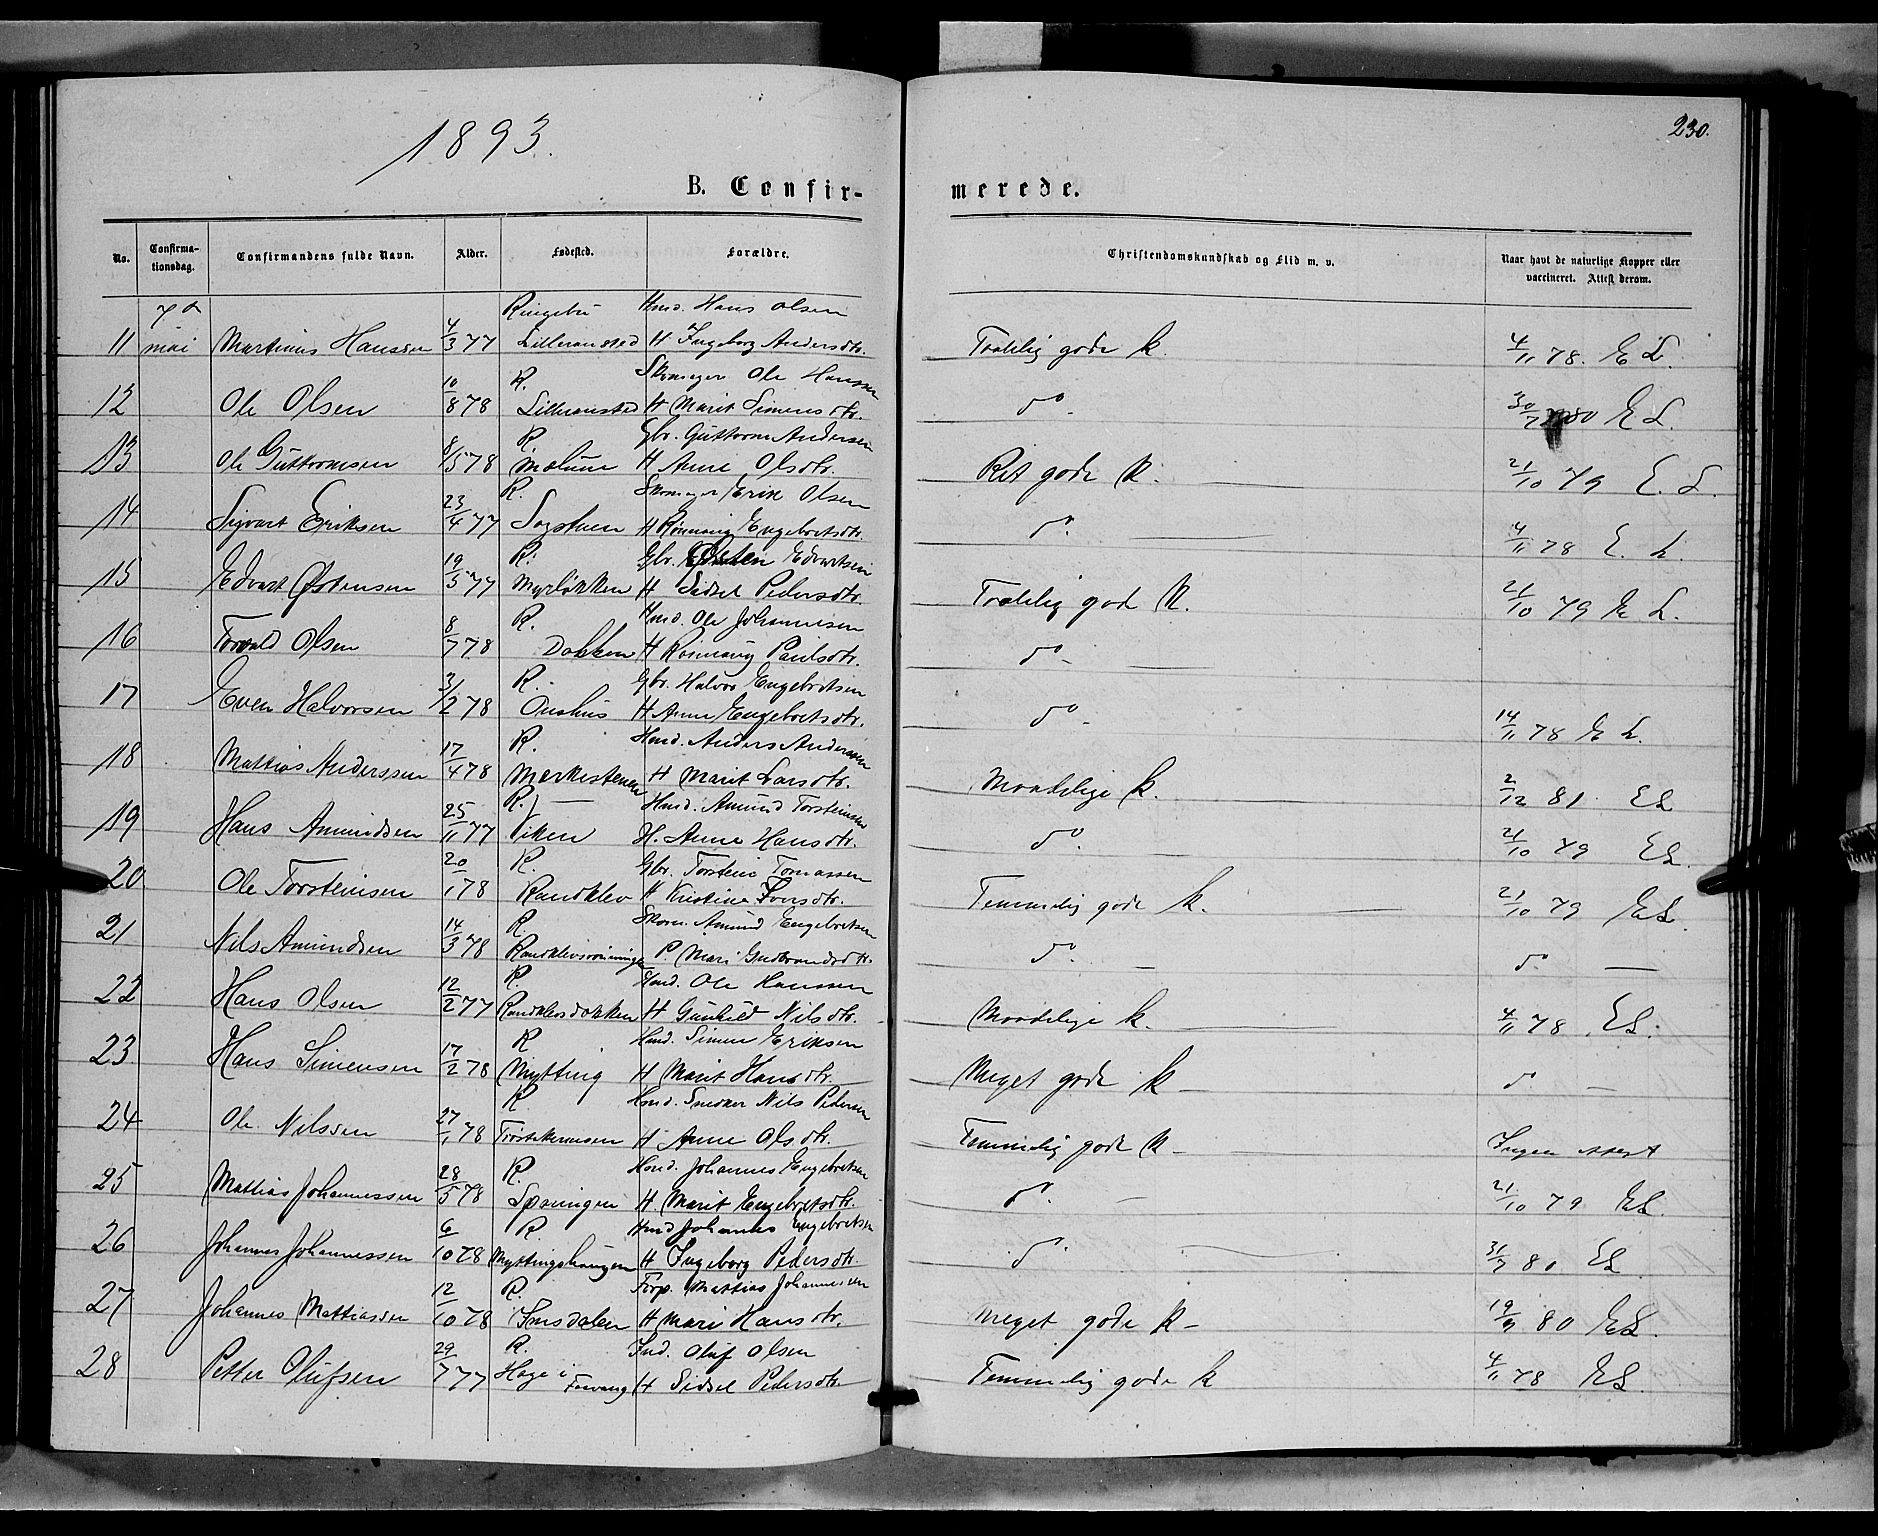 230.
1893.
B. Confir-
merede.
No.
Confirma-
tionsdag.
Confirmandens fulde Navn.
Alder.
Fødested.
Forældre.
Christendomskundskab og Flid m. v.
Naar havt de naturlige Kopper eller
vaccineret. Attest derom.
7de Ringebu Hmd. Hans Olsen
11 mai Martinus Hanssen 4/3 77 Lilleransted H Ingeborg Andersdtr. Taalelig gode k. 4/11 78. E L.
R. Skomager Ole Hanssen
12 Ole Olsen 10/8 78 Lilleransted H Marit Simensdtr. do. 30/7 80 E L.
R. Gbr. Guttorm Andersen
13 Ole Guttormsen 8/5 78 Mælum H Anne Olsdtr. Ret gode k. 21/10 79 E. L.
R. Skomager Erik Olsen
14 Sigvart Eriksen 23/4 77 Sagstuen H Rønnaug Engebretsdtr. do. 4/11 78 E. L.
R. Gbr. Østen Edvartsen
15 Edvart Østensen 19/5 77 Myrløkken H Sidsel Pedersdtr. Taalelig gode k. 21/10 79 E L.
R. Hmd. Ole Johannesen
16 Torvald Olsen 8/7 78 Dokken H Rønnaug Paulsdtr. do
R. Gbr. Halvor Engebretsen
17 Even Halvorsen 3/2 78 H Anne Engebretsdtr. do 14/11 78 E L.
R. Hmd. Anders Anderssen
18 Mattias Anderssen 17/4 78 Merkestenen H Marit Larsdtr. Maadelige k. 2/12 81 E L
R. Hmd. Amund Torsteinsen
19 Hans Amundsen 25/11 77 Viken H. Anne Hansdtr. do. 21/10 79 EL.
R. Gbr. Torstein Tomassen
20 Ole Torsteinsen 20/1 78 Randklev H Kristine Iversdtr. Temmelig gode k. 21/10 79 EL.
R. Skom. Amund Engebretsen
21 Nils Amundsen 14/3 78 Randklevsrønningen P Mari Gudbrandsdtr. do. do
R. Hmd. Ole Hanssen
22 Hans Olsen 12/2 77 Randklevsdokken H Gunhild Nilsdtr. Maadelige k. 4/11 78 EL.
R Hmd. Simen Eriksen
23 Hans Simensen 17/2 78 Mytting H Marit Hansdtr. Meget gode k do
R Hmd. Snedker Nils Pedersen
24 Ole Nilssen 27/1 78 H Anne Olsdtr. Temmelig gode k Ingen attest
R. Hmd. Johannes Engebretsen
25 Mattias Johannessen 28/5 78 H Marit Engebretsdtr. do. 21/10 79 EL.
R. Hmd Johannes Engebretsen
26 Johannes Johannessen 6/10 78 Myttingshaugen H Ingeborg Pedersdtr. do 31/7 80 EL
R. Forp. Mattias Johannesen
27 Johannes Mattiassen 12/10 78 Imsdalen H Mari Hansdtr. Meget gode k 19/9 80 EL.
R. Ind. Oluf Olsen
28 Petter Olufsen 29/7 77 Hage i Favang H Sidsel Pedersdtr Temmelig gode k 4/11 78 EL.